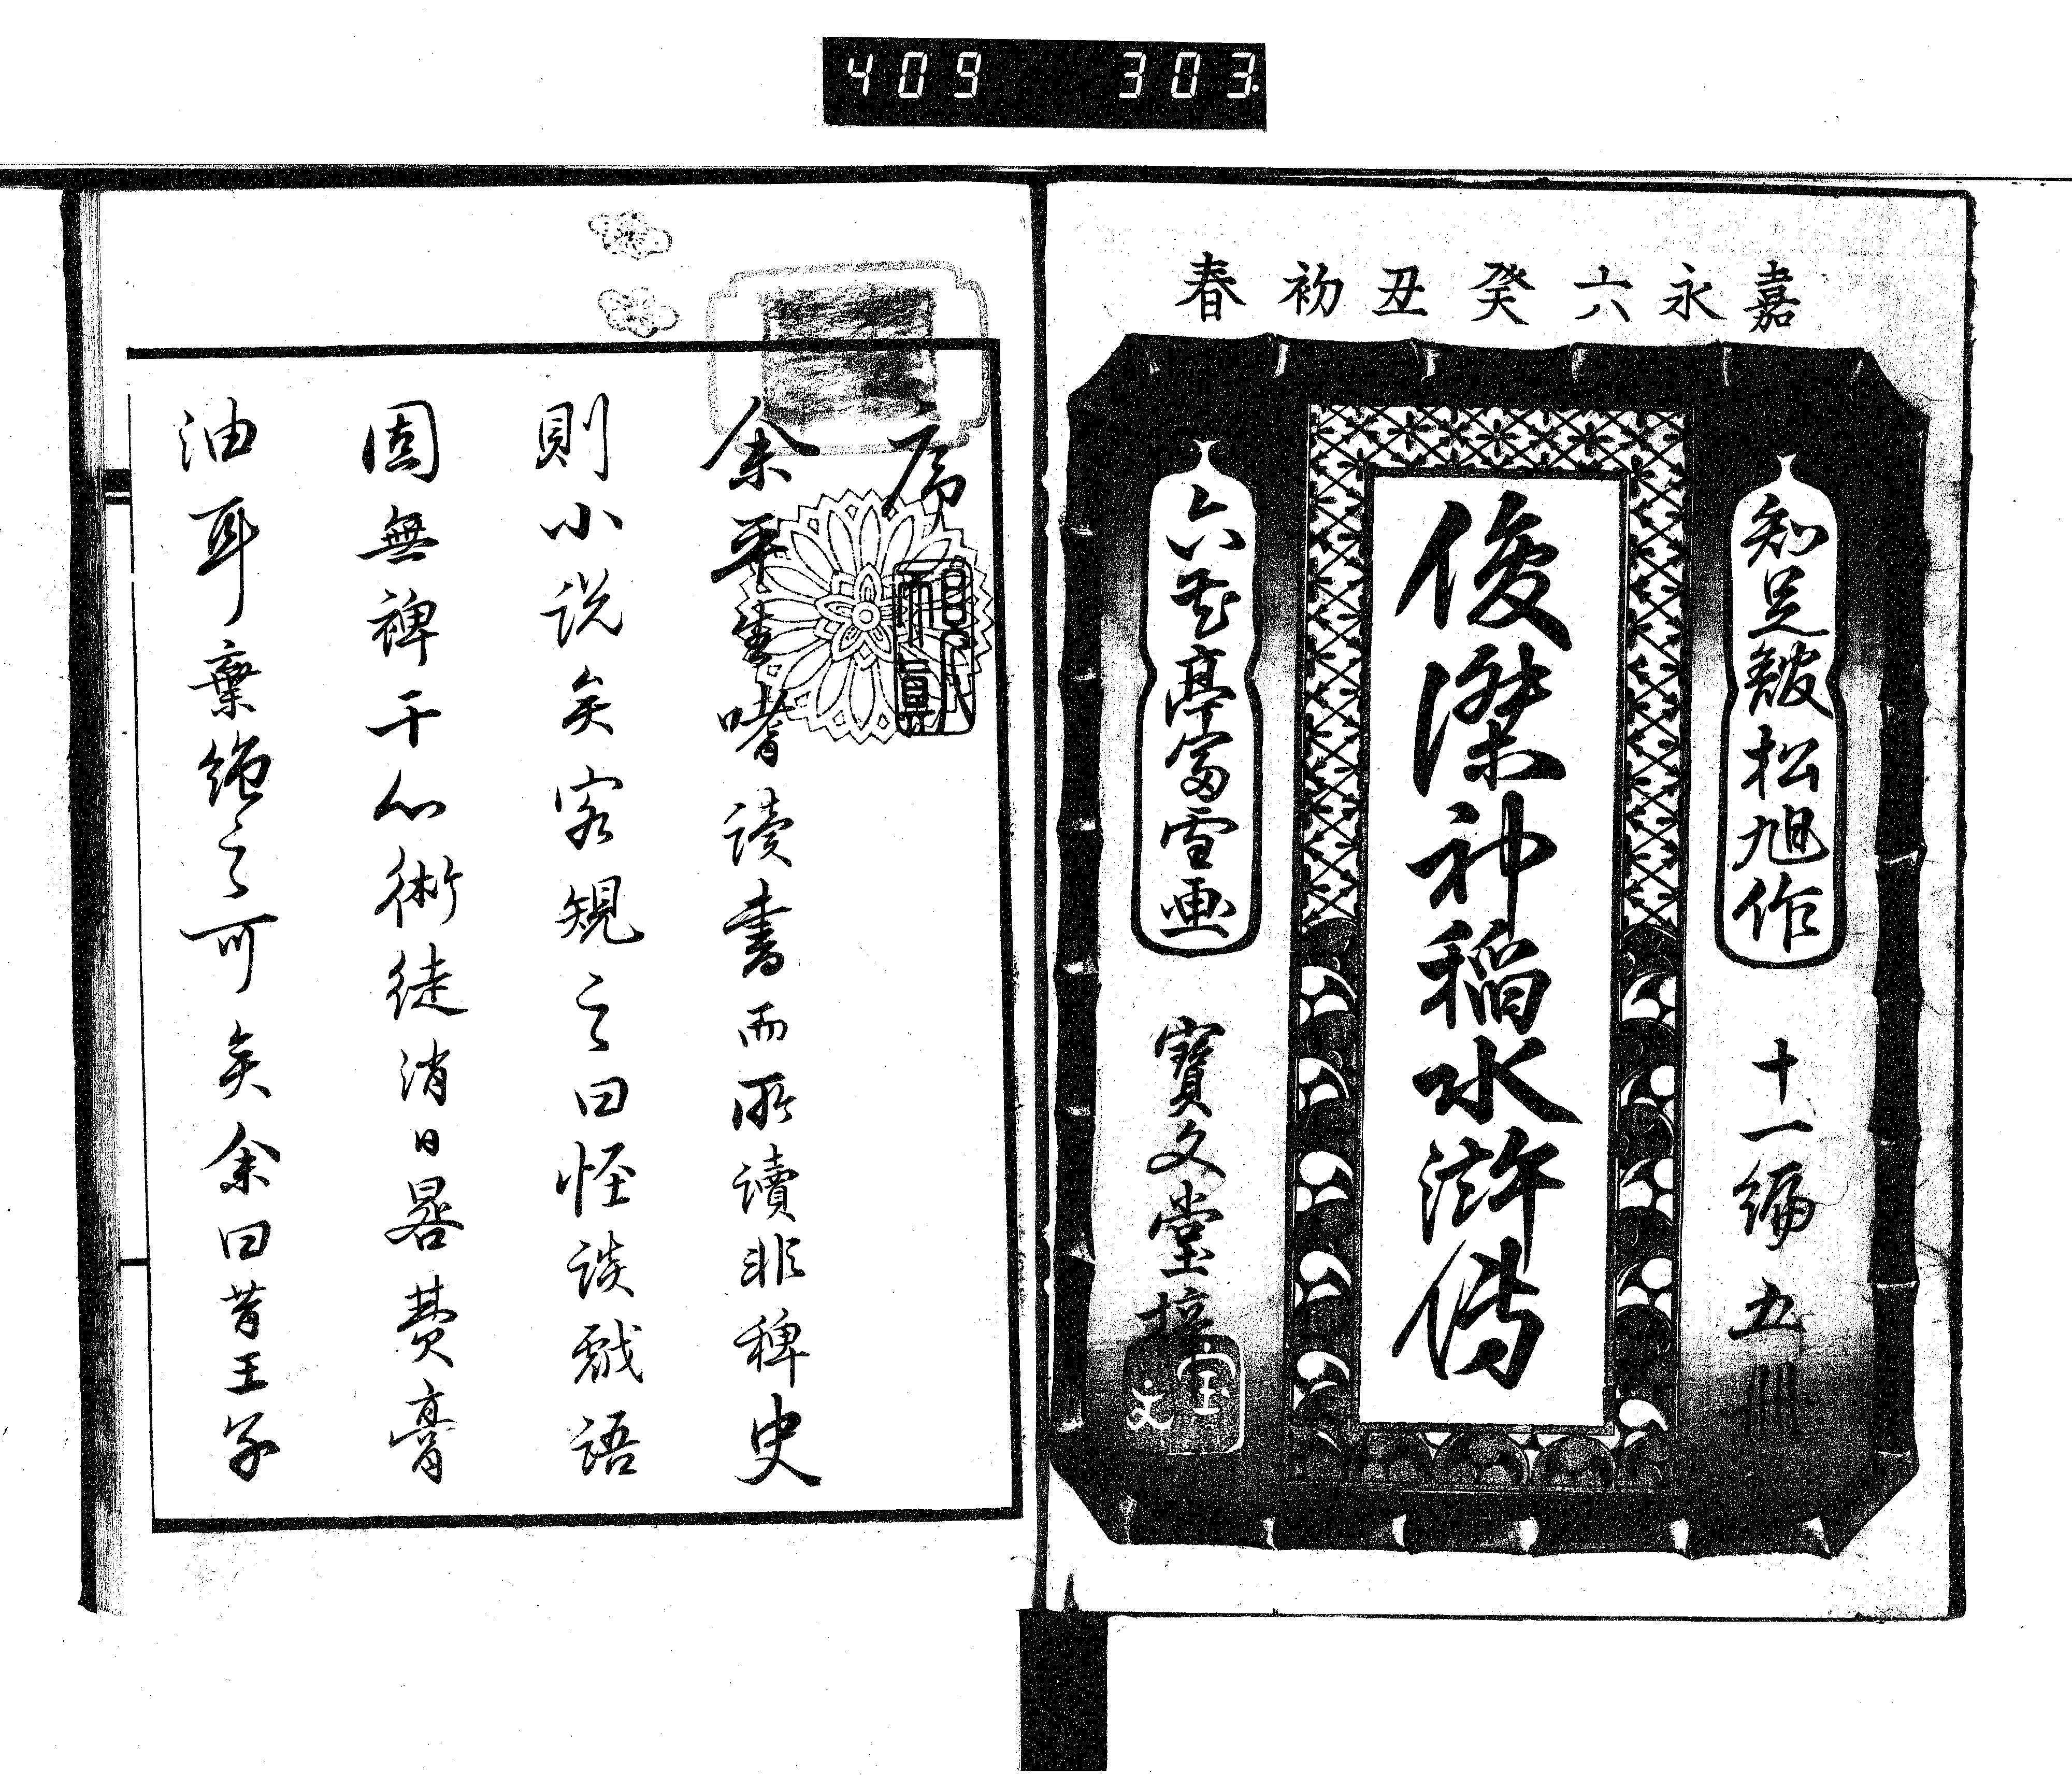 409 303
嘉永六癸丑初春
知足館松旭作
十一編 五冊
俊傑神稲水滸傳
六花亭富雪画
寶文堂梓
宝文
序
余平生嗜读書而所讀非稗史
則小説矣客規之曰怪談戯語
固無裨于心術徒消日晷費膏
油耳棄絶之可矣余曰昔王子